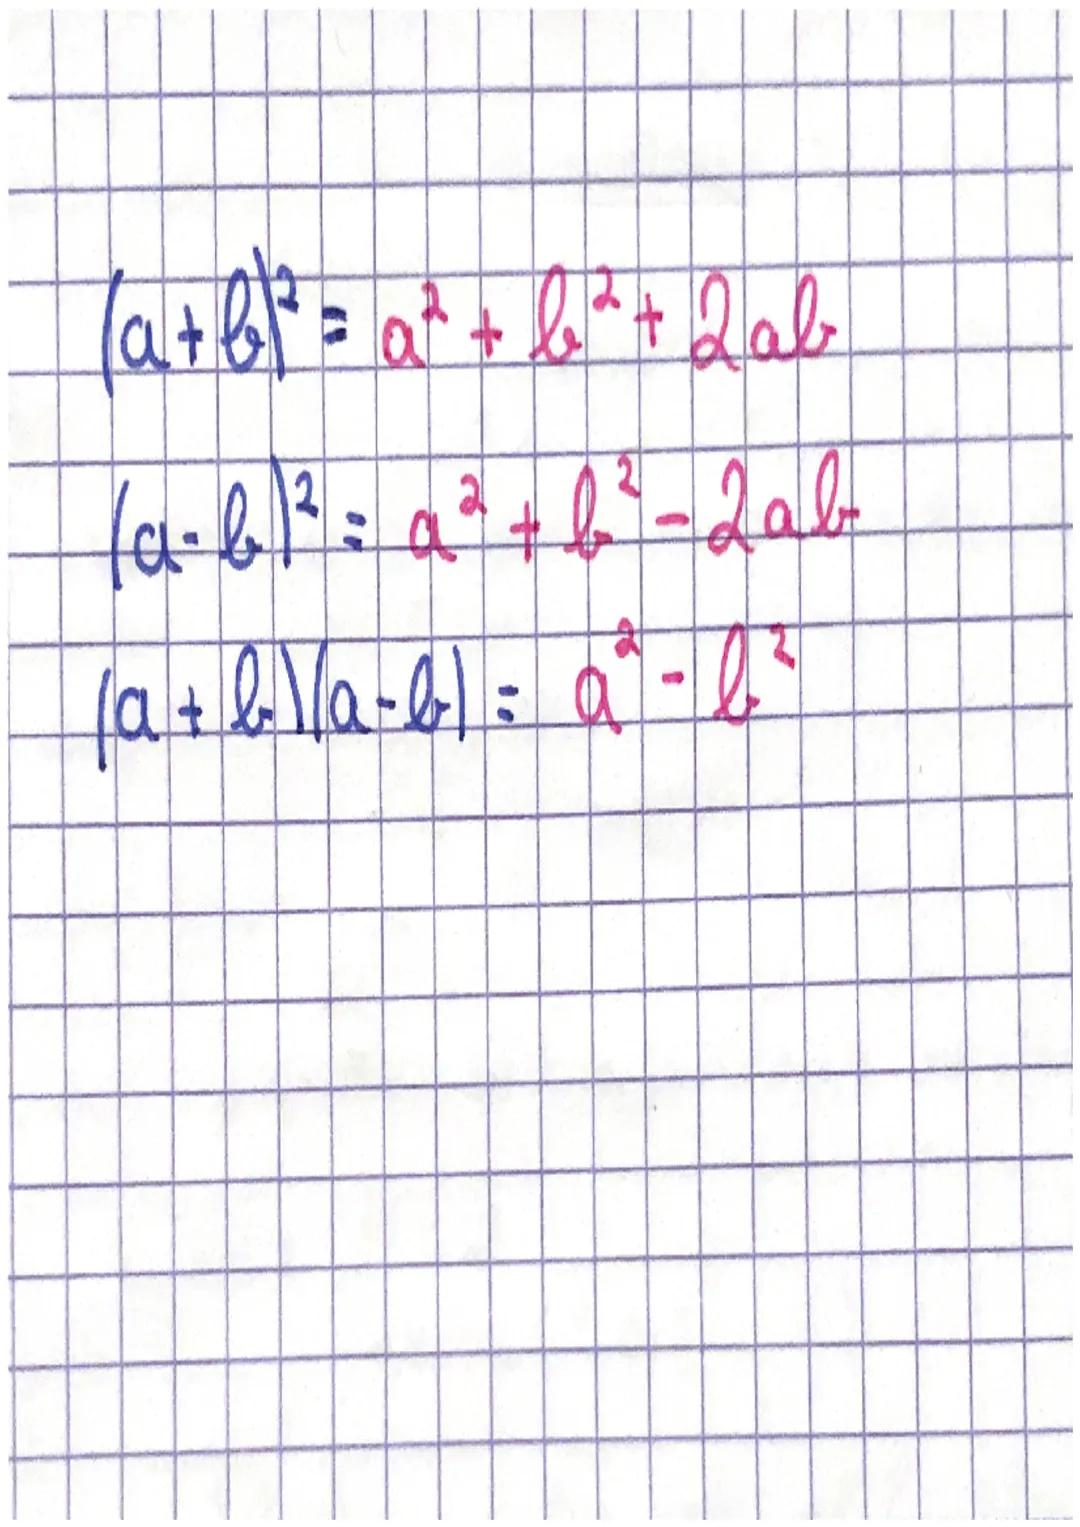 (a+b)² = a² + b² + 2ab
(a-b)² = a² + b² - 2ab
(a+b)(a-b) = a² - b²